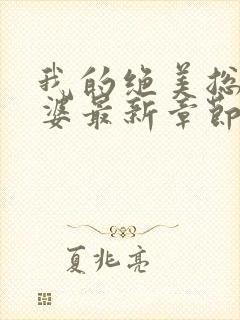 我的绝美总
婆最新章节
夏兆亮